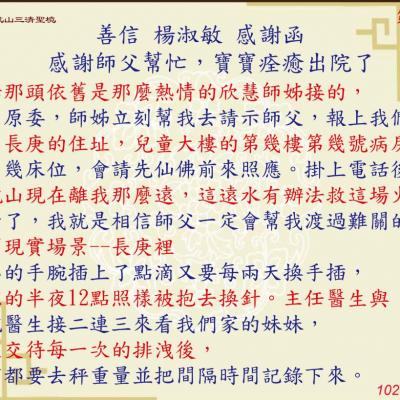 山三清聖境
善信 楊淑敏 感謝函
感謝師父幫忙，寶寶痊癒出院了
那頭依舊是那麼熱情的欣慧師姊接的，
原委，師姊立刻幫我去請示師父，報上我們
長庚的住址，兒童大樓的第幾樓第幾號病房
幾床位，會請先仙佛前來照應。掛上電話後
山現在離我那麼遠，這遠水有辦法救這場火
了，我就是相信師父一定會幫我渡過難關的
現實場景--長庚裡
的手腕插上了點滴又要每兩天換手插，
的半夜12點照樣被抱去換針。主任醫生與
醫生接二連三來看我們家的妹妹，
交待每一次的排洩後，
都要去秤重量並把間隔時間記錄下來。
102